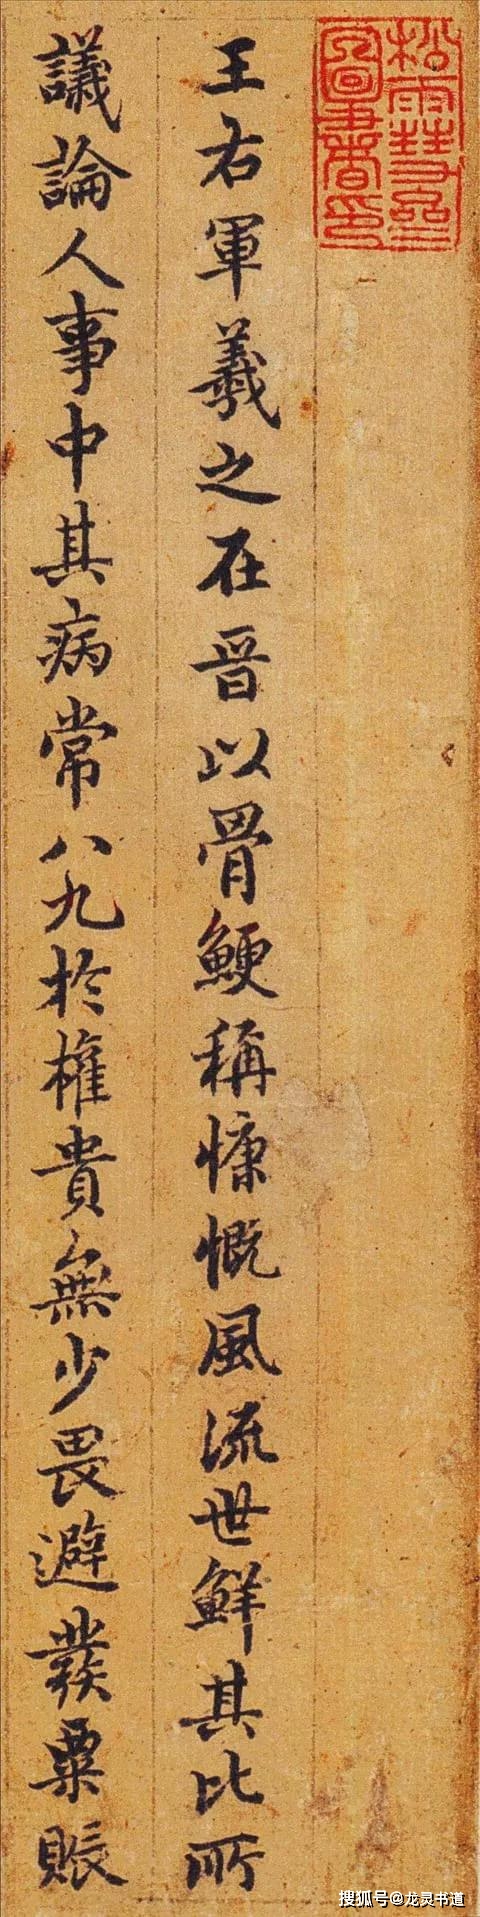 松雪齋
圖書印
王右軍羲之在晋以骨鯁稱慷慨風流世鮮其比所
議論人事中其病常八九於權貴無少畏避發粟賑
搜狐号@龙灵书道